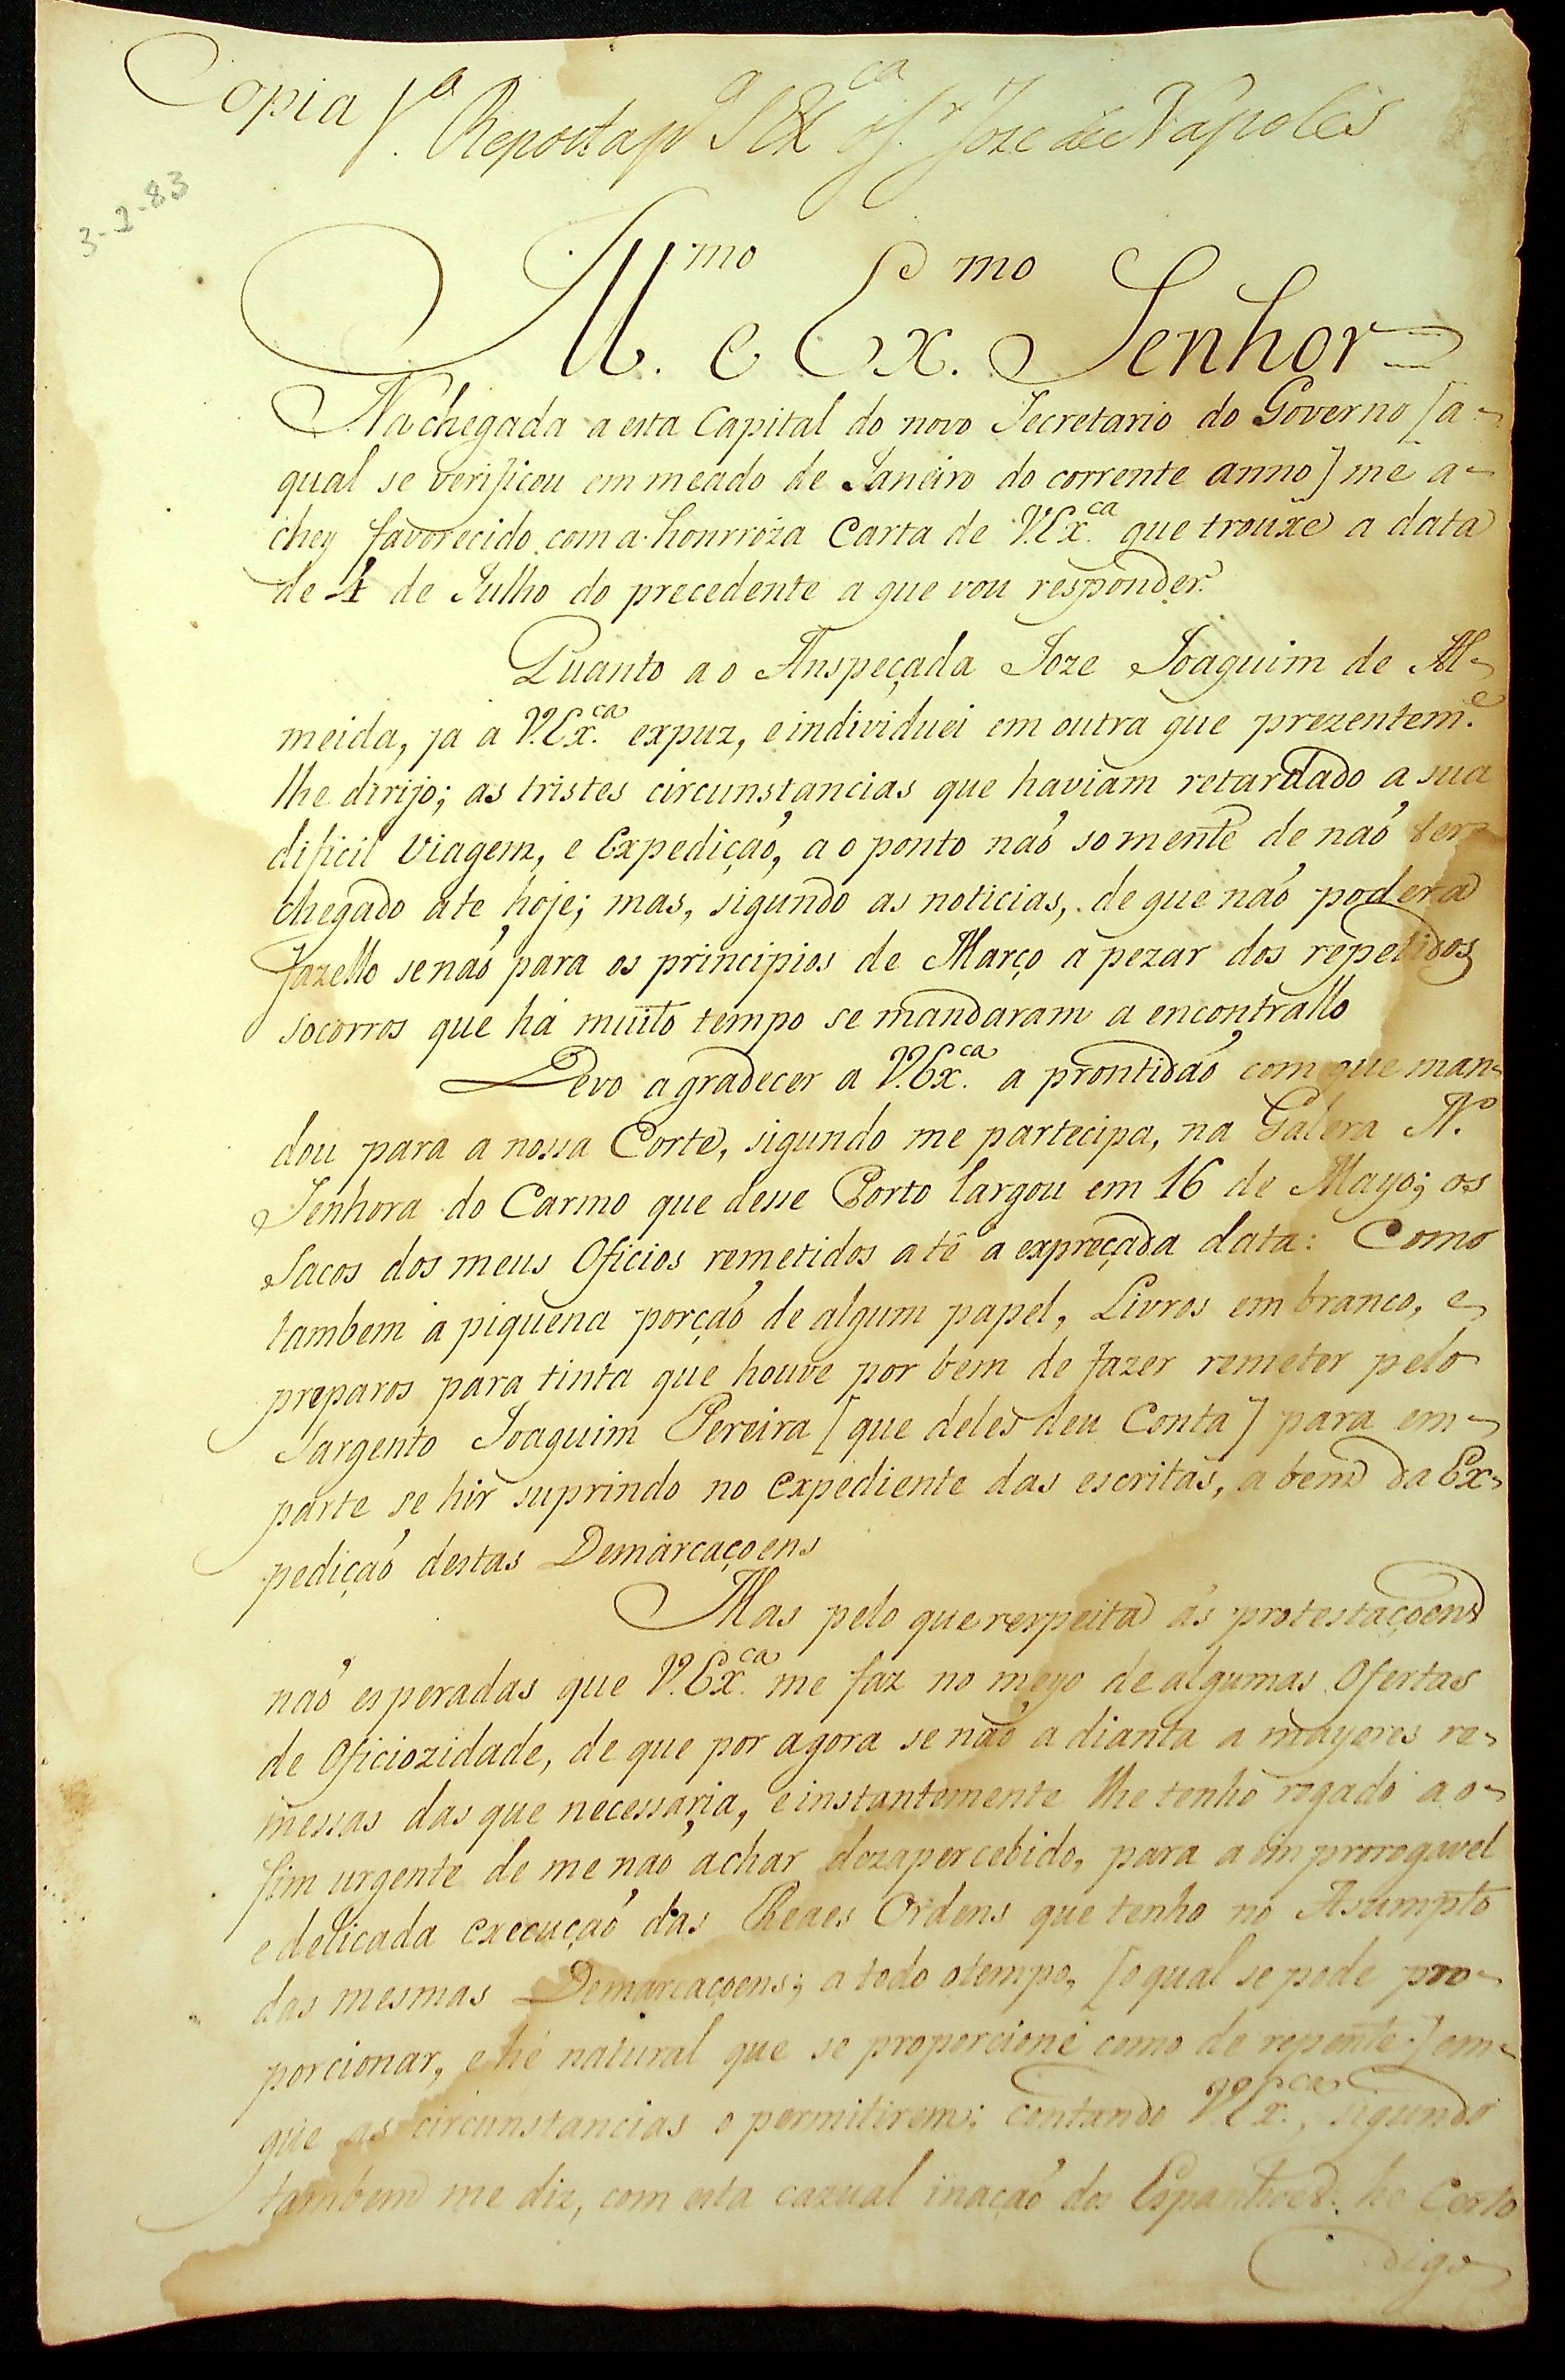 Copia V.ª Reposta pª S Exca o Sr. Joze de Napoles
3-2-83
Illmo e Exmo. Senhor
Na chegada a esta Capital do novo Secretario do Governo [a-
qual se verificou em meado de Janeiro do corrente anno] me a-
chey favorecido com a honrroza Carta de V.Exca. que trouxe a data
de 4 de Julho do precedente a que vou responder.
Quanto ao Anspeçada Joze Joaquim de Al-
meida, ja a V.Exca. expuz, e individuei em outra que prezenteme.
lhe dirijo; as tristes circunstancias que haviam retardado a sua
dificil Viagem, e Expediçaó, ao ponto naó somente de naó ter
chegado ate hoje; mas, sigundo as noticias, de que naó poderá
fazello senaó para os principios de Março a pezar dos repetidos
socorros que há muito tempo se mandaram a encontrallo
Devo agradecer a V.Exca. a prontidaó com que man-
dou para a nossa Corte, sigundo me partecipa, na Galera N.
Senhora do Carmo que desse Porto largou em 16 de Mayo; os
Sacos dos meus Oficios remetidos atê a expreçada data: Como
tambem a piquena porçaó de algum papel, Livros em branco, e
preparos para tinta que houve por bem de fazer remeter pelo
Sargento Joaquim Pereira [que deles deu Conta] para em-
parte se hir suprindo no expediente das escritas, a bem da Ex-
pediçaó destas Demarcaçoens
Mas pelo que respeita ás protestaçoens
naó esperadas que V.Exca. me faz no meyo de algumas Ofertas
de Oficiozidade, de que por agora se naó adianta a mayores re-
messas das que necessaria, e instantemente lhe tenho rogado ao-
fim urgente de me naó achar dezapercebido, para a improrogavel
e delicada execuçaó das Reaes Ordens que tenho no Asumpto
das mesmas Demarcaçoens; a todo o tempo, [o qual se pode pro-
porcionar, e hé natural que se proporcione como de repente] em-
que as circunstancias o permitirem; contando V.Exca., sigundo
tambem me diz, com esta cazual inaçaó dos Espanhoes: he Certo
digo